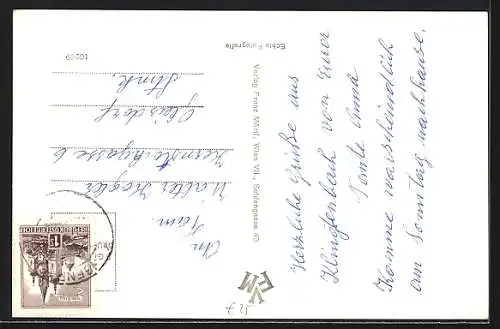 Herzliche Grüße aus
Klingenbach von Eurer
Tante Anna
Komme warscheindlich
am Sonntag nachhause.
Echte Fotografie
Verlag Franz Mörtl, Wien VII., Seidengasse
10209
An
Fam.
Walter Kogler
Kernstockgasse 6
Gleisdorf
Stmk.
REPUBLIK ÖSTERREICH